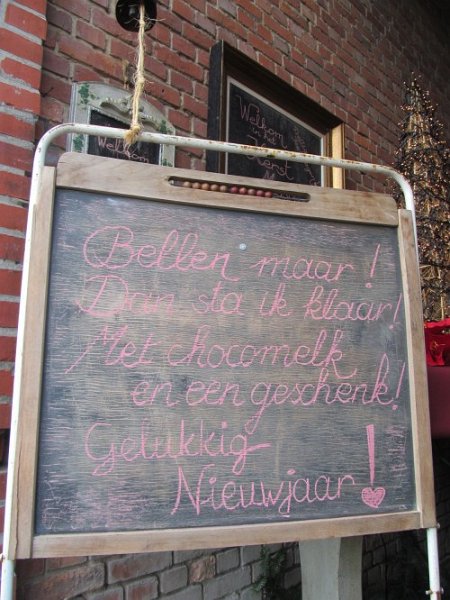 Welkom
in het
Kerst
Welkom
Bellen maar!
Dan sta ik klaar!
Met chocomelk
en een geschenk!
Gelukkig
Nieuwjaar!